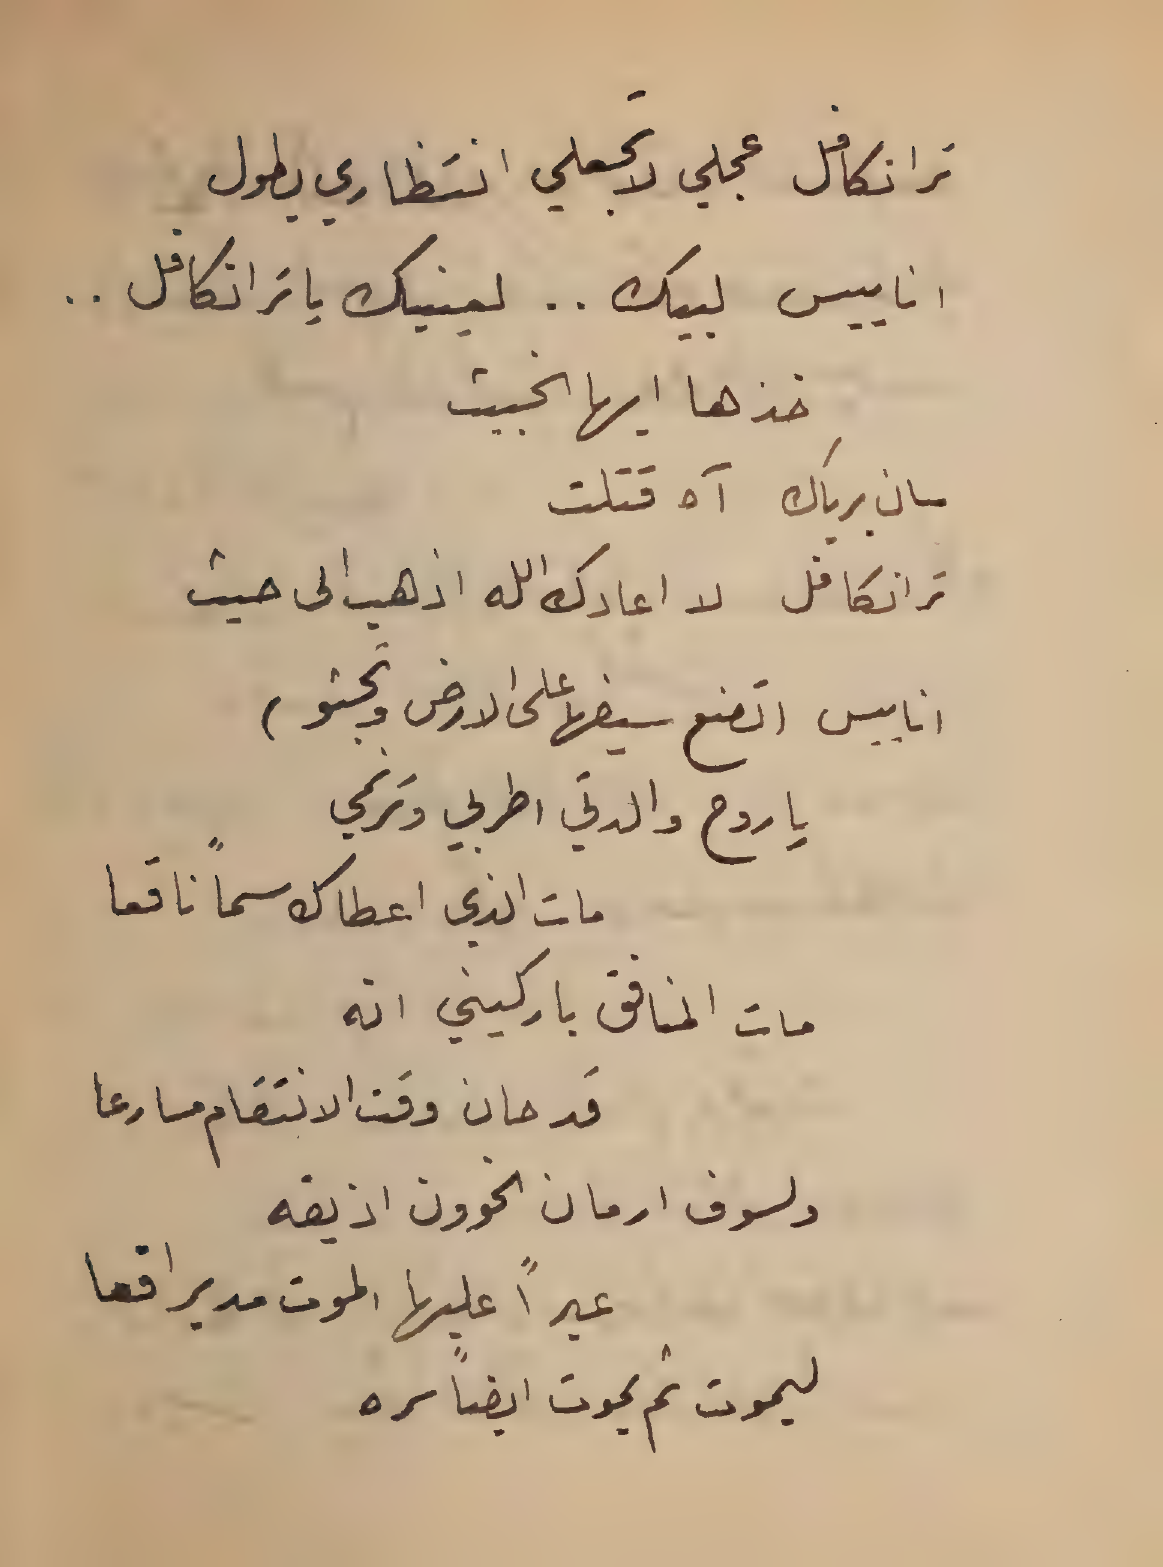 ترانكافل عجلي لا تجعلي انتظاري يطول
اناييس لبيك .. لعينيك يا ترانكافل ..
خذها ايها الخبيث
سان برياك آه قتلت
ترانكافل لا اعادك الله اذهب الى حيث
اناييس (تضع سيفها على الارض وتجثو)
يا روح والدتي اطربي وترنمي
مات الذي اعطاك سماً ناقعا
مات المنافق باركيني انه
قد حان وقت الانتقام مسارعا
ولسوف ارمان الخوون اذيقه
عيراً عليها الموت مديراقعا
ليموت ثم يموت ايضاً سره